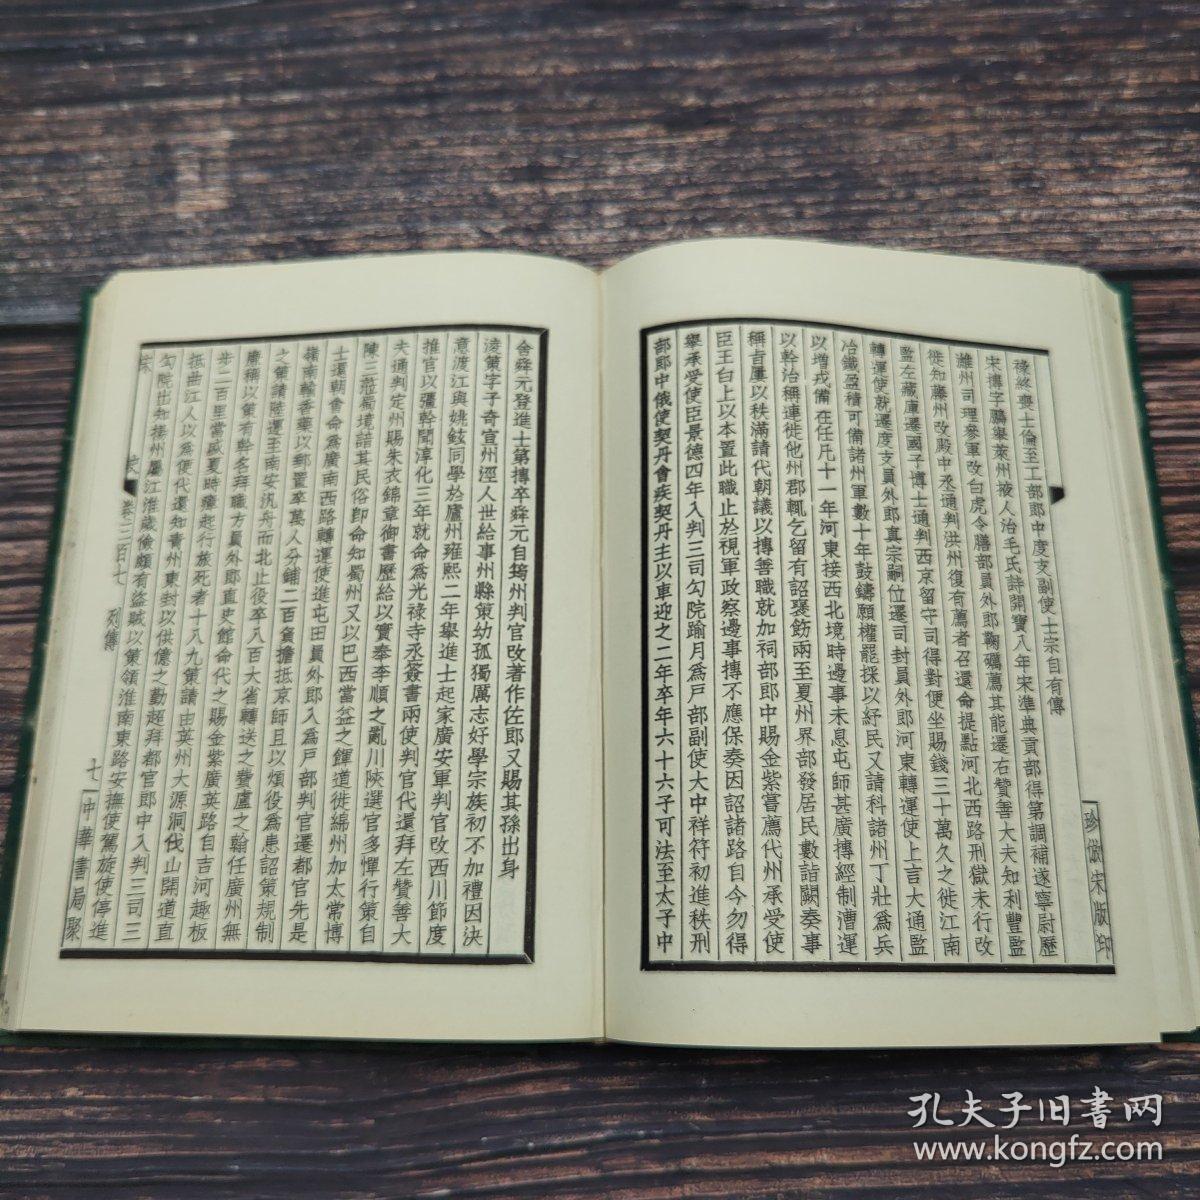 祿終喪士倫至工部郎中度支副使士宗自有傳
宋摶字鵬舉萊州掖人治毛氏詩開寶八年宋準典貢部得第調補遂寧尉歷
濰州司理參軍改白虎令膳部員外郎鞠礪薦其能遷右贊善大夫知利豐監
徙知藤州改殿中丞通判洪州復有薦者召還命提點河北西路刑獄未行改
監左藏庫遷國子博士通判西京留守司得對便坐賜錢三十萬久之徙江南
轉運使就遷度支員外郎真宗嗣位遷司封員外郎河東轉運使上言大通監
冶鐵盈積可備諸州軍數十年鼓鑄願權罷採以紓民又請科諸州丁壯爲兵
以增戎備在任凡十一年河東接西北境時邊事未息屯師甚廣摶經制漕運
以幹治稱連徙他州郡輒乞留有詔褒飭兩至夏州界部發居民數詣闕奏事
稱旨屢以秩滿請代朝議以摶善職就加祠部郎中賜金紫嘗薦代州承受使
臣王白上以本置此職止於視軍政察邊事摶不應保奏因詔諸路自今勿得
舉承受使臣景德四年入判三司勾院踰月爲戶部副使大中祥符初進秩刑
部郎中俄使契丹會疾契丹主以車迎之二年卒年六十六子可法至太子中
珍倣宋版印
舍舜元登進士第摶卒舜元自筠州判官改著作佐郎又賜其孫出身
淩策字子奇宣州涇人世給事州縣策幼孤獨厲志好學宗族初不加禮因決
意渡江與姚鉉同學於廬州雍熙二年舉進士起家廣安軍判官改西川節度
推官以彊幹聞淳化三年就命爲光祿寺丞簽書兩使判官代還拜左贊善大
夫通判定州賜朱衣錦章御書歷給以實奉李順之亂川陝選官多憚行策自
陳三蒞蜀境諳其民俗卽命知蜀州又以巴西當益之餫道徙綿州加太常博
士還朝會命爲廣南西路轉運使進屯田員外郎入爲戶部判官遷都官先是
嶺南輸香藥以郵置卒萬人分鋪二百負擔抵京師且以煩役爲患詔策規制
之策請陸運至南安汎舟而北止役卒八百大省轉送之費盧之翰任廣州無
廉稱以策有幹名拜職方員外郎直史館命代之賜金紫廣英路自吉河趣板
步二百里當盛夏時瘴起行旅死者十八九策請由英州大源洞伐山開道直
抵曲江人以爲便代還知青州東封以供億之勤超拜都官郎中入判三司三
勾院出知揚州屬江淮歲儉頗有盜賊以策領淮南東路安撫使駕旋使停進
宋 史 卷三百七 列傳 七 中華書局聚
孔夫子旧书网
www.kongfz.com